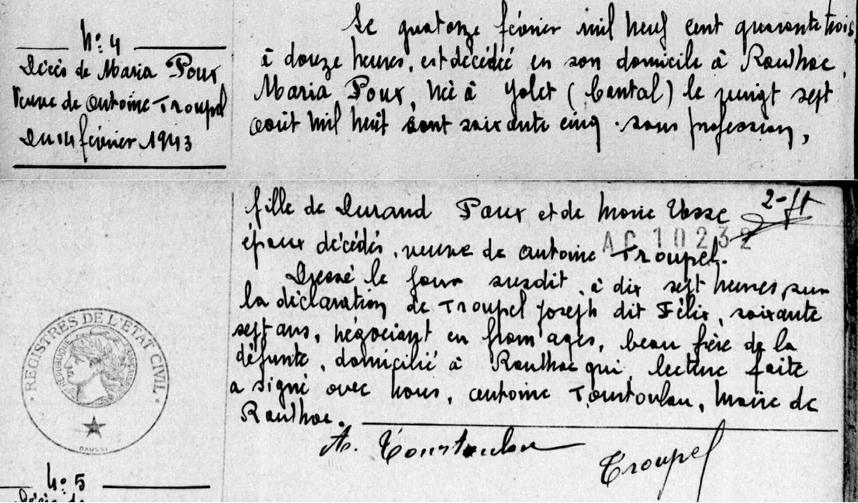 N° 4
Décès de Maria Poux
Veuve de Antoine Troupel
Du 14 février 1943
Le quatorze février mil neuf cent quarante trois
à douze heures, est décédée en son domicile à Raulhac
Maria Poux, née à Yolet (Cantal) le vingt sept
août mil huit cent soixante cinq. sans profession,
fille de Durand Poux et de Marie
époux décédés, veuve de Antoine Troupel.
AC 10232
Dressé le jour susdit, à dix sept heures, sur
la déclaration de Troupel Joseph dit Félix, soixante
sept ans, négociant en fromages, beau frère de la
défunte, domicilié à Raulhac qui, lecture faite
a signé avec nous, Antoine Tourtoulou, Maire de
Raulhac.
A. Tourtoulou
Troupel
REGISTRES DE L'ETAT CIVIL
N° 5